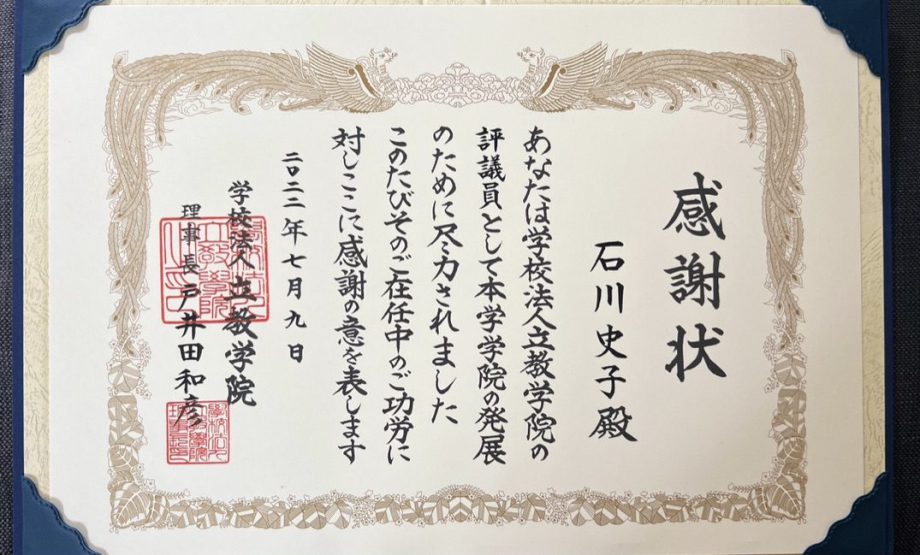 感謝状
石川史子殿
あなたは学校法人立教学院の
評議員として本学学院の発展
のために尽力されました
このたびそのご在任中のご功労に
対しここに感謝の意を表します
二〇二二年七月九日
学校法人立教学院
理事長戸井田和彦